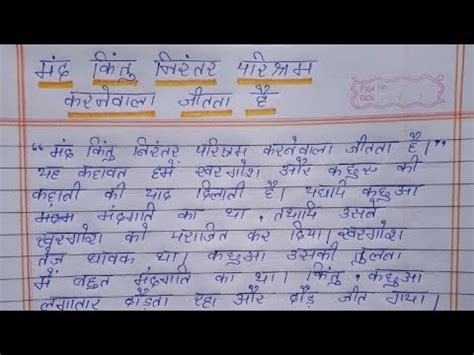 मंद किंतु निरंतर परिश्रम
करनेवाला जीतता है
Page No
Date
"मंद किंतु निरंतर परिश्रम करनेवाला जीतता है।"
यह कहावत हमें खरगोश और कछुए की
कहानी की याद दिलाती है। यद्यपि कछुआ
मंदगति का था, तथापि उसने
खरगोश को पराजित कर दिया। खरगोश
तेज धावक था। कछुआ उसकी तुलना
में बहुत मंदगति का था। किंतु, कछुआ
लगातार दौड़ता रहा और दौड़ जीत गया।